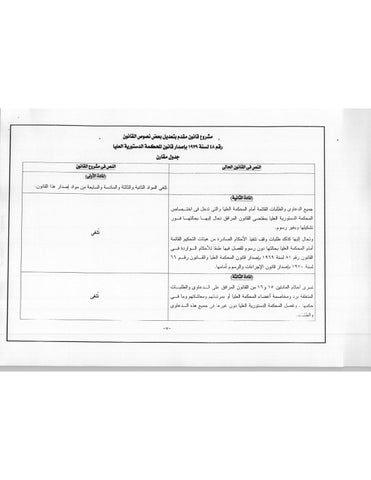 مشروع قانون مقدم بتعديل بعض نصوص القانون
رقم ٤٨ لسنة ١٩٧٩ بإصدار قانون المحكمة الدستورية العليا
جدول مقارن
النص فى القانون الحالى
النص فى مشروع القانون
(المادة الأولى)
تلغى المواد الثانية والثالثة والسادسة والسابعة من مواد إصدار هذا القانون.
(المادة الثانية)
جميع الدعاوى والطلبات القائمة أمام المحكمة العليا والتى تدخل فى اختصاص
المحكمة الدستورية العليا بمقتضى القانون المرافق تحال إليها بحالتها فور
تشكيلها وبغير رسوم.
وتحال إليها كذلك طلبات وقف تنفيذ الأحكام الصادرة من هيئات التحكيم القائمة
أمام المحكمة العليا بحالتها دون رسوم للفصل فيها طبقا للأحكام الواردة فى
القانون رقم ٨١ لسنة ١٩٦٩ بإصدار قانون المحكمة العليا والقانون رقم ٦٦
لسنة ١٩٧٠ بإصدار قانون الإجراءات والرسوم أمامها.
تلغى
(المادة الثالثة)
تسرى أحكام المادتين ١٥ و١٦ من القانون المرافق على الدعاوى والطلبات
المتعلقة برد ومخاصمة أعضاء المحكمة العليا أو بمرتباتهم ومعاشاتهم وما فى
حكمها . وتفصل المحكمة الدستورية العليا دون غيرها فى جميع هذه الدعاوى
والطلبات.
تلغى